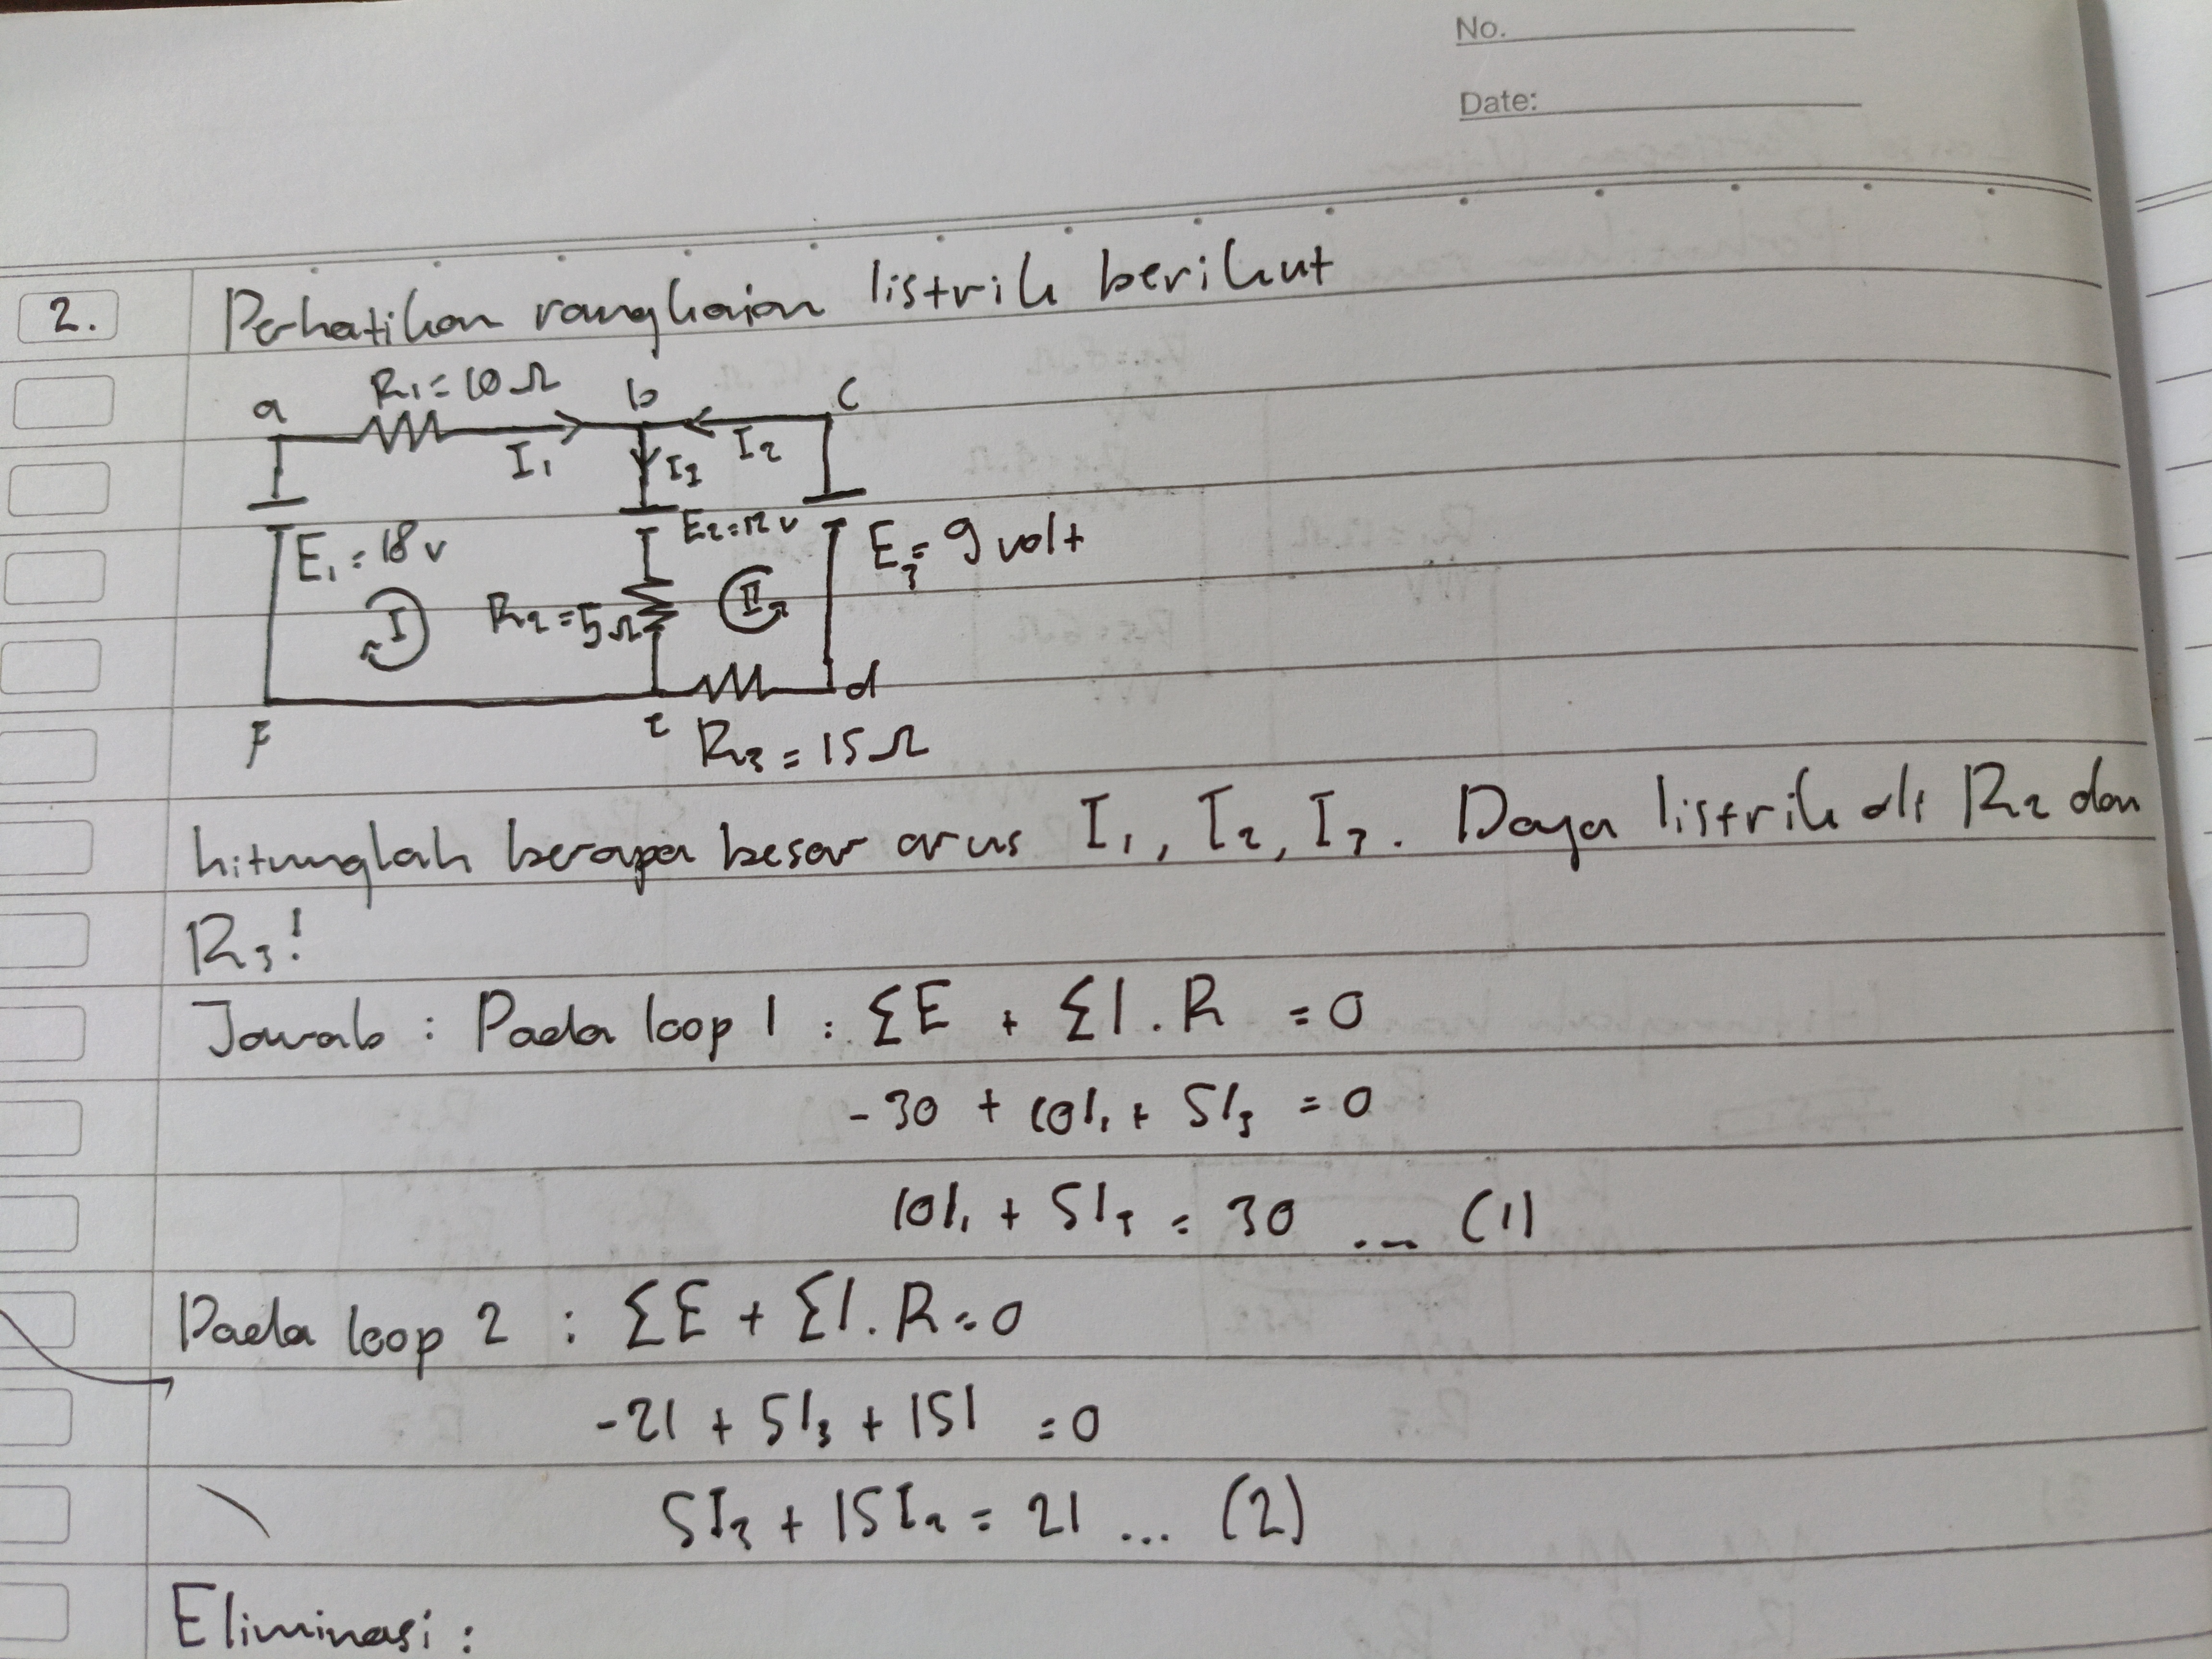 No.
Date:
2. Perhatikan rangkaian listrik berikut
a R₁=10Ω b c
I₁ I₃ I₂
E₁=18v E₂=12v E₃=9volt
I R₂=5Ω II
F e d
R₃=15Ω
hitunglah berapa besar arus I₁, I₂, I₃. Daya listrik di R₂ dan
R₃!
Jawab : Pada loop 1 : ΣE + ΣI.R = 0
-30 + 10I₁ + 5I₃ = 0
10I₁ + 5I₃ = 30 ... (1)
Pada loop 2 : ΣE + ΣI.R = 0
-21 + 5I₃ + 15I = 0
5I₃ + 15I₂ = 21 ... (2)
Eliminasi :